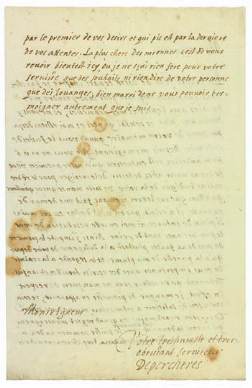 par le premier de vos desirs et qui plus est par la derniere
de vos attentes. La plus chere des miennes est de vous
revoir bientost icy ou je ne sçai rien fere pour votre
service que des souhaits ni rien dire de votre personne
que des louanges, bien marri de ne vous pouvoir tes-
moigner autrement que je suis
Monseigneur
Votre treshumble et tres
obeissant serviteur
Deporcheres